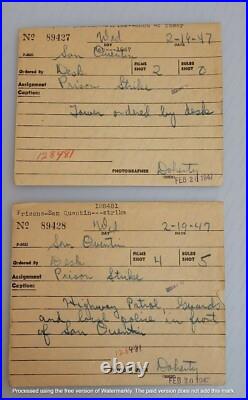 Nº 89427 Wed 2-19-47
DAY DATE
San Quentin
PLACE
Ordered by Desk FILMS SHOT 2 BULBS SHOT 0
Assignment Prison Strike
Caption:
Tower ordered by desk
128481
PHOTOGRAPHER Doherty
FEB 20 1947
128481
Prisons-San Quentin---strike
Nº 89428 Wed 2-19-47
DAY DATE
San Quentin
PLACE
Ordered by Desk FILMS SHOT 4 BULBS SHOT 5
Assignment Prison Strike
Caption:
Highway Patrol, Guards
and local police in front
of San Quentin
128481
Doherty
FEB 20 1947
Processed using the free version of Watermarkly. The paid version does not add this mark.